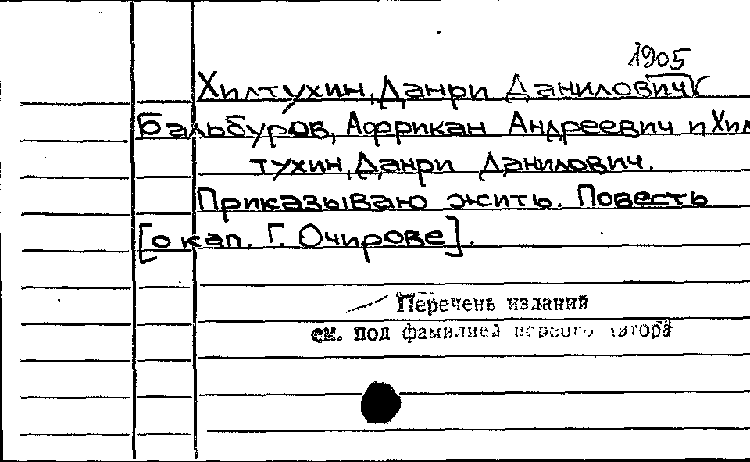 1905
Хилтухин, Данри Данилович
Бальбуров, Африкан Андреевич и Хил
тухин, Данри Данилович.
Приказываю жить. Повесть
[о кап. Г. Очирове].
Перечень изданий
см. под фамилией первого автора